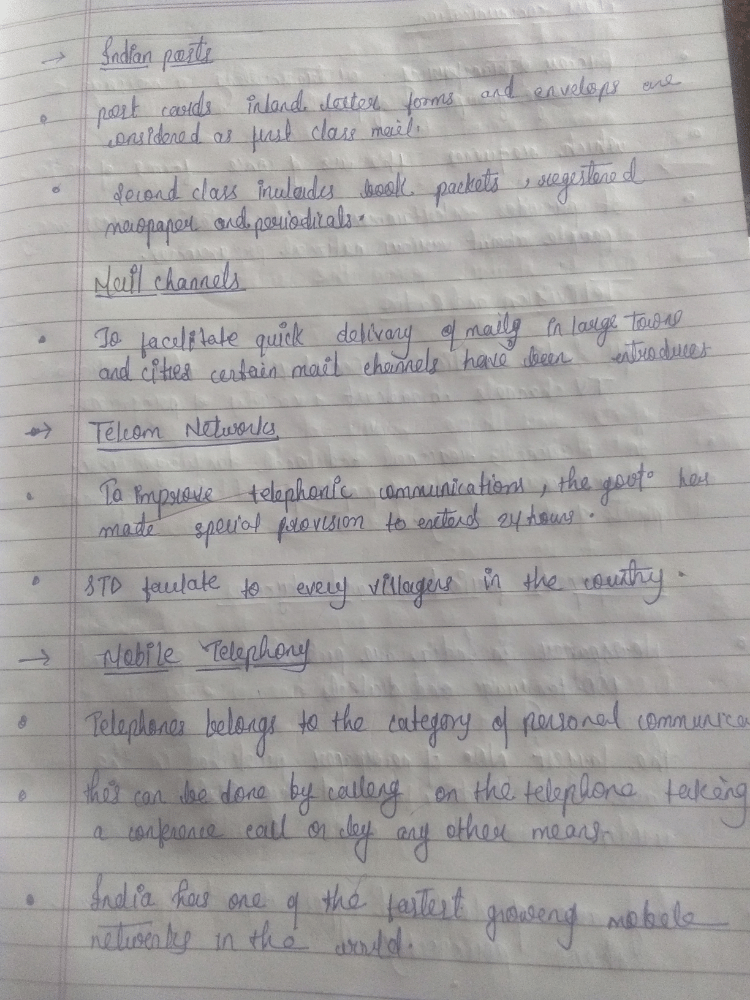 → Indian posts
• post cards inland letter forms and envelops are
considered as first class mail.
• Second class includes book packets, regestered
newspaper and periodicals.
Mail channels
• To facelitate quick delivary of mails in large towns
and cities certain mail channels have been introduces
→ Telcom Networks
• To improve telephonic communications, the govt. has
made special provision to extend 24 hours.
• STD to every villagers in the country.
→ Mobile Telephony
• Telephones belongs to the category of personal communica
• this can be done by calleng on the telephone takeng
a conference call or by any other means.
• India has one of the fastest groweng mobele
networks in the world.